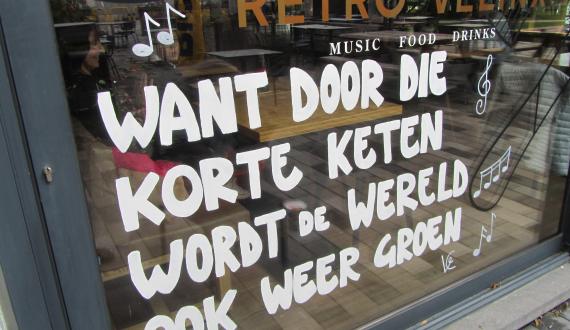 RETRO
MUSIC FOOD DRINKS
WANT DOOR DIE
KORTE KETEN
WORDT DE WERELD
OOK WEER GROEN